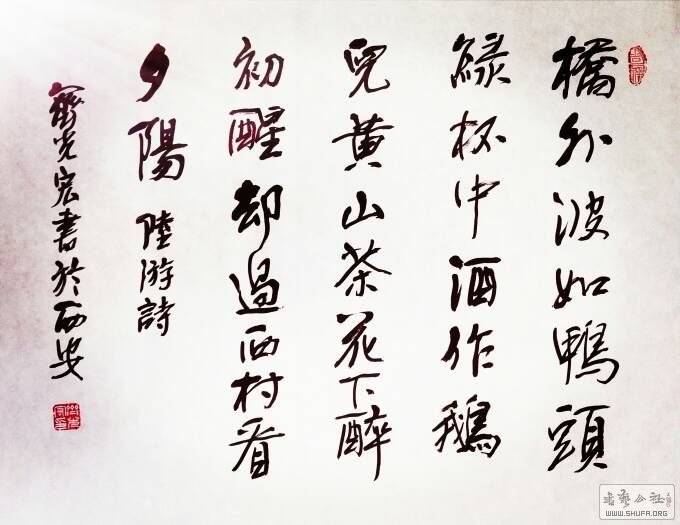 橋外波如鴨頭
綠杯中酒作鵝
兒黃山茶花下醉
初醒却過西村看
夕陽 陸游詩
齊光宏書於西安
書藝公社
WWW.SHUFA.ORG